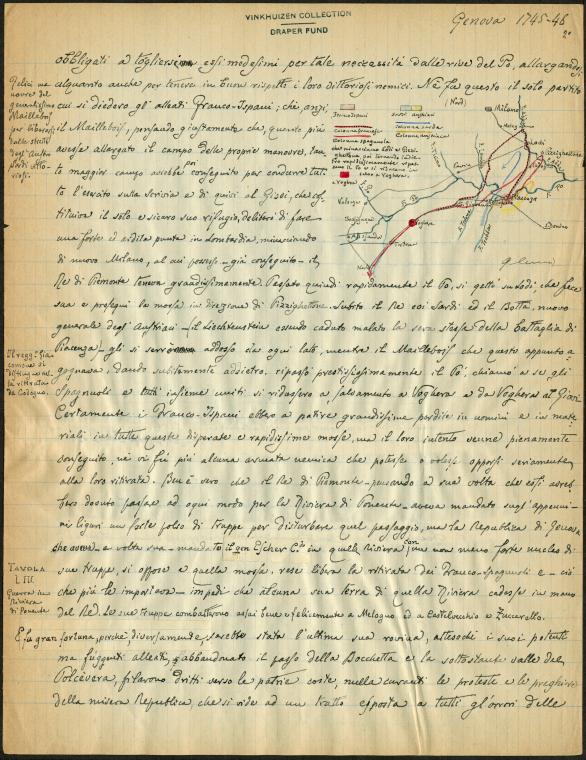 VINKHUIZEN COLLECTION
DRAPER FUND
Genova 1745-46
2º
obbligati a togliersi essi medesimi per tale necessità dalle rive del Po, allargandosi
alquanto anche per tenere in buon rispetto i loro vittoriosi nemici. Nè fu questo il solo partito
cui si diedero gli alleati Franco-Ispani; chè, anzi,
il Maillebois, pensando giustamente che, quanto più
avesse allargato il campo delle proprie manovre, tan
to maggior campo avrebbe poi conseguito per condurre tutto
l'esercito sulla Scrivia e di quivi al Giovi, che co
stituiva il solo e sicuro suo rifugio, deliberò di fare
una forte ed ardita punta in Lombardia, minacciando
di nuovo Milano, al cui possesso - già conseguito - il
Re di Piemonte teneva grandissimamente. Passato quindi rapidamente il Po, si gettò su Lodi, che prese
e proseguì la mossa in direzione di Pizzighettone. Subito il Re coi Sardi ed il Botta, nuovo
generale degli Austriaci - il Liechtenstein essendo caduto malato la sera stessa della battaglia di
Piacenza - gli si serrò addosso da ogni lato, mentre il Maillebois che questo appunto a
gognava, dando subitamente addietro, ripassò prestissimamente il Po, chiamò a se gli
Spagnuoli e tutti insieme uniti si ridussero a salvamento a Voghera e da Voghera al Giovi
Certamente i Franco-Ispani ebbero a patire grandissime perdite in uomini e in mate
riali in tutte queste disperate e rapidissime mosse, ma il loro intento venne pienamente
conseguito, nè vi fu più alcuna armata nemica che potesse o volesse opporsi seriamente
alla loro ritirata. Ben è vero che il Re di Piemonte - pensando a sua volta che essi avreb
bero dovuto passare ad ogni modo per la Riviera di Ponente - aveva mandato sugl'appenni-
ni liguri un forte polso di truppe per disturbare quel passaggio, ma la Republica di Genova
a volta sua - mandato il gen Escher in quella Riviera con non meno forte nucleo di
sue truppe, si oppose a quella mossa, rese libera la ritirata dei Franco-spagnuoli e - ciò
che più le importava - impedì che alcuna sua terra di quella Riviera cadesse in mano
del Re. Le sue truppe combatterono assai bene e felicemente a Melogno ed a Castelvecchio e Zuccarello.
E fu gran fortuna, perchè, diversamente, sarebbe stata l'ultima sua rovina, attesochè i suoi potenti
ma fuggenti alleati, abbandonato il passo della Bocchetta e la sottostante valle del
Polcevera, filarono dritti verso le patrie coste, nulla curanti le proteste e le preghiere
della misera Republica, che si vide ad un tratto esposta a tutti gl'orrori delle
Felici ma
novre del
Maillebois
per liberarsi
dalle strette
degl'Austro
Sardi vitto
riosi.
Il regg.
comune si
distingue nel
la ritirata
da Codogno.
TAVOLA
LIII.
Guerra in
Riviera
di Ponente
(Nord)
Franco ispani
Sardi, austriaci
Colonna francese
Colonna sarda
Colonna austriaca
Colonna spagnuola
Voghera
Milano
Lodi
Pizzighettone
Pavia
Piacenza
Valenza
Alessandria
Tortona
Novi
F. Ticino
F. Po
F. Trebbia